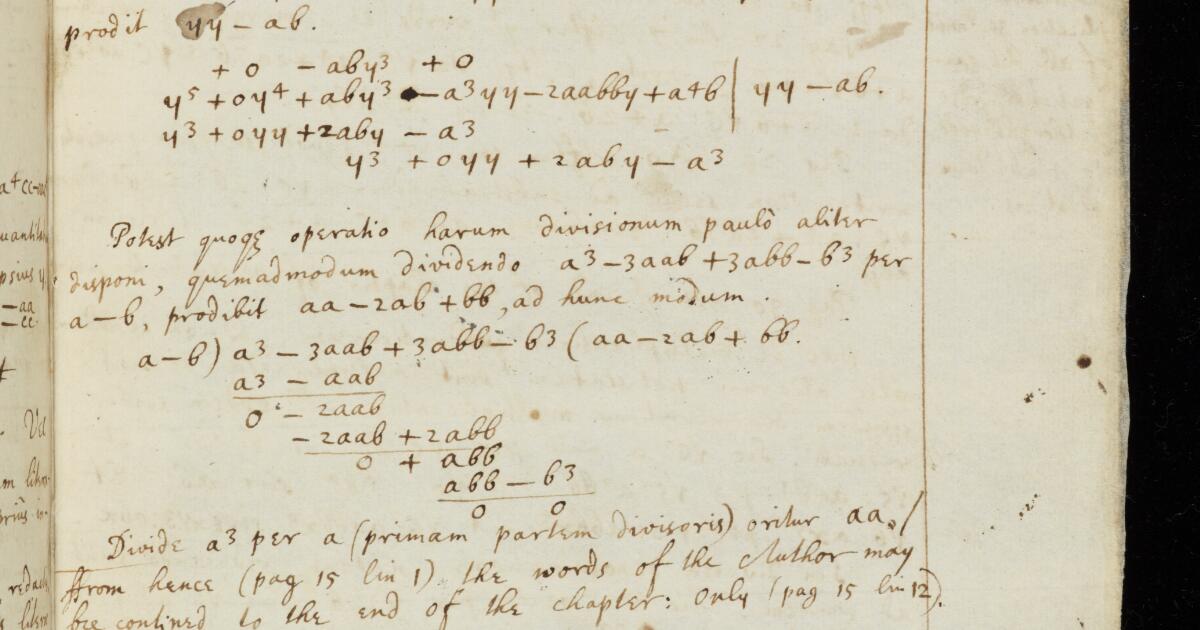 prodit yy − ab.
+ 0 − aby³ + 0
y⁵ + 0y⁴ + aby³ − a³yy − 2aabby + a⁴b | yy − ab.
y³ + 0yy + 2aby − a³
y³ + 0yy + 2aby − a³
Potest quoqꝫ operatio harum divisionum paulò aliter
disponi, quemadmodum dividendo a³ − 3aab + 3abb − b³ per
a − b, prodibit aa − 2ab + bb, ad hunc modum.
a − b) a³ − 3aab + 3abb − b³ (aa − 2ab + bb.
a³ − aab
0 − 2aab
− 2aab + 2abb
0 + abb
abb − b³
0 0
Divide a³ per a (primam partem divisoris) oritur aa. /
ffrom hence (pag 15 lin 1) the words of the Author may
bee contined to the end of the chapter: Only (pag 15 lin 12).
a⁴cc
psius y
−aa
−cc
Vel